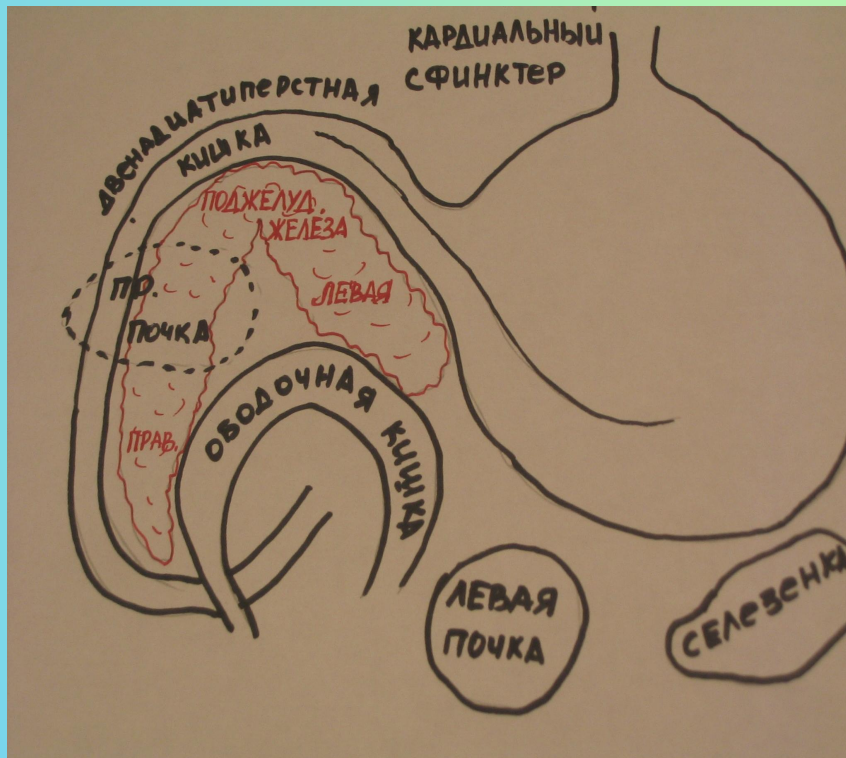 КАРДИАЛЬНЫЙ
СФИНКТЕР
ДВЕНАДЦАТИПЕРСТНАЯ
КИШКА
ПОДЖЕЛУД.
ЖЕЛЕЗА
ЛЕВАЯ
ПР.
ПОЧКА
ПРАВ.
ОБОДОЧНАЯ КИШКА
ЛЕВАЯ
ПОЧКА
СЕЛЕЗЕНКА